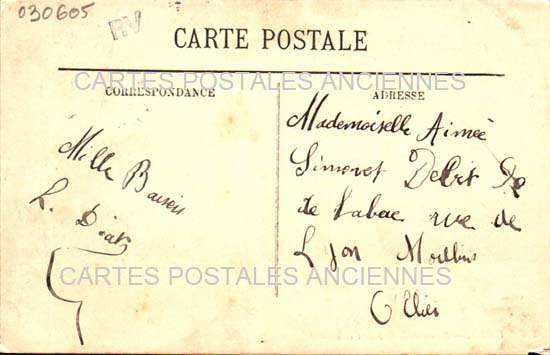 030605
RV
CARTE POSTALE
CARTES POSTALES ANCIENNES
CORRESPONDANCE
Mille Baisers
L.
ADRESSE
Mademoiselle Aimée
Simonet Debit De
de tabac rue de
Lyon Moulins
Allier
CARTES POSTALES ANCIENNES